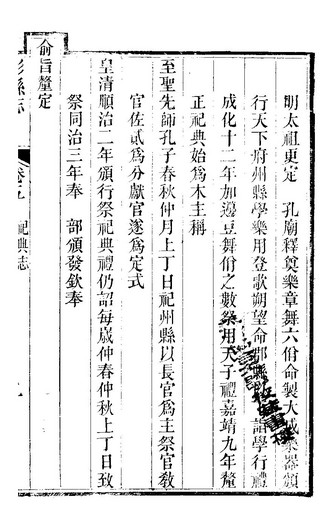 明太祖更定　孔廟釋奠樂章舞六佾命製大成樂器頒
行天下府州縣學樂用登歌朔望命郡縣官詣學行禮
成化十二年加籩豆舞佾之數祭用天子禮嘉靖九年釐
正祀典始爲木主稱
至聖先師孔子春秋仲月上丁日祀州縣以長官爲主祭官敎
官佐貳爲分獻官遂爲定式
皇清順治二年頒行祭祀典禮仍詔每歲仲春仲秋上丁日致
祭同治三年奉　部頒發欽奉
俞旨釐定
縣志
卷
祀典志
九